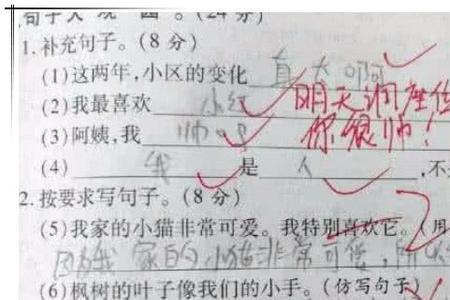 句子大观园。(24分)
1.补充句子。(8分)
(1)这两年,小区的变化 真大啊
(2)我最喜欢 小红 明天调座位
(3)阿姨,我 帅吗 你很帅!
(4) 我 是 人 ,不
2.按要求写句子。(8分)
(5)我家的小猫非常可爱。我特别喜欢它。(用
因为我家的小猫非常可爱,所以
(6)枫树的叶子像我们的小手。(仿写句子)